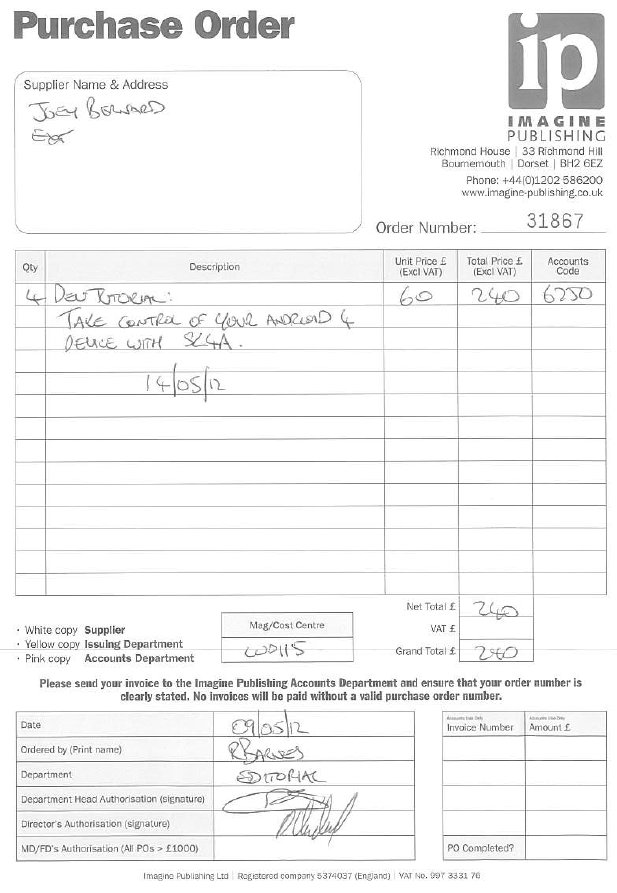 Purchase Order
ip
IMAGINE
PUBLISHING
Richmond House | 33 Richmond Hill
Bournemouth | Dorset | BH2 6EZ
Phone: +44(0)1202 586200
www.imagine-publishing.co.uk
Supplier Name & Address
JOEY BERNARD
Order Number: 31867
Qty Description Unit Price £ (Excl VAT) Total Price £ (Excl VAT) Accounts Code
4 DEV TUTORIAL: 60 240 6250
TAKE CONTROL OF YOUR ANDROID 4
DEVICE WITH SL4A.
14/05/12
Net Total £ 240
VAT £
Grand Total £ 240
· White copy Supplier
· Yellow copy Issuing Department
· Pink copy Accounts Department
Mag/Cost Centre
LUD115
Please send your invoice to the Imagine Publishing Accounts Department and ensure that your order number is
clearly stated. No invoices will be paid without a valid purchase order number.
Date 09/05/12
Ordered by (Print name) R BARNES
Department EDITORIAL
Department Head Authorisation (signature)
Director's Authorisation (signature)
MD/FD's Authorisation (All POs > £1000)
Accounts Use Only Accounts Use Only
Invoice Number Amount £
PO Completed?
Imagine Publishing Ltd | Registered company 5374037 (England) | VAT No. 997 3331 76